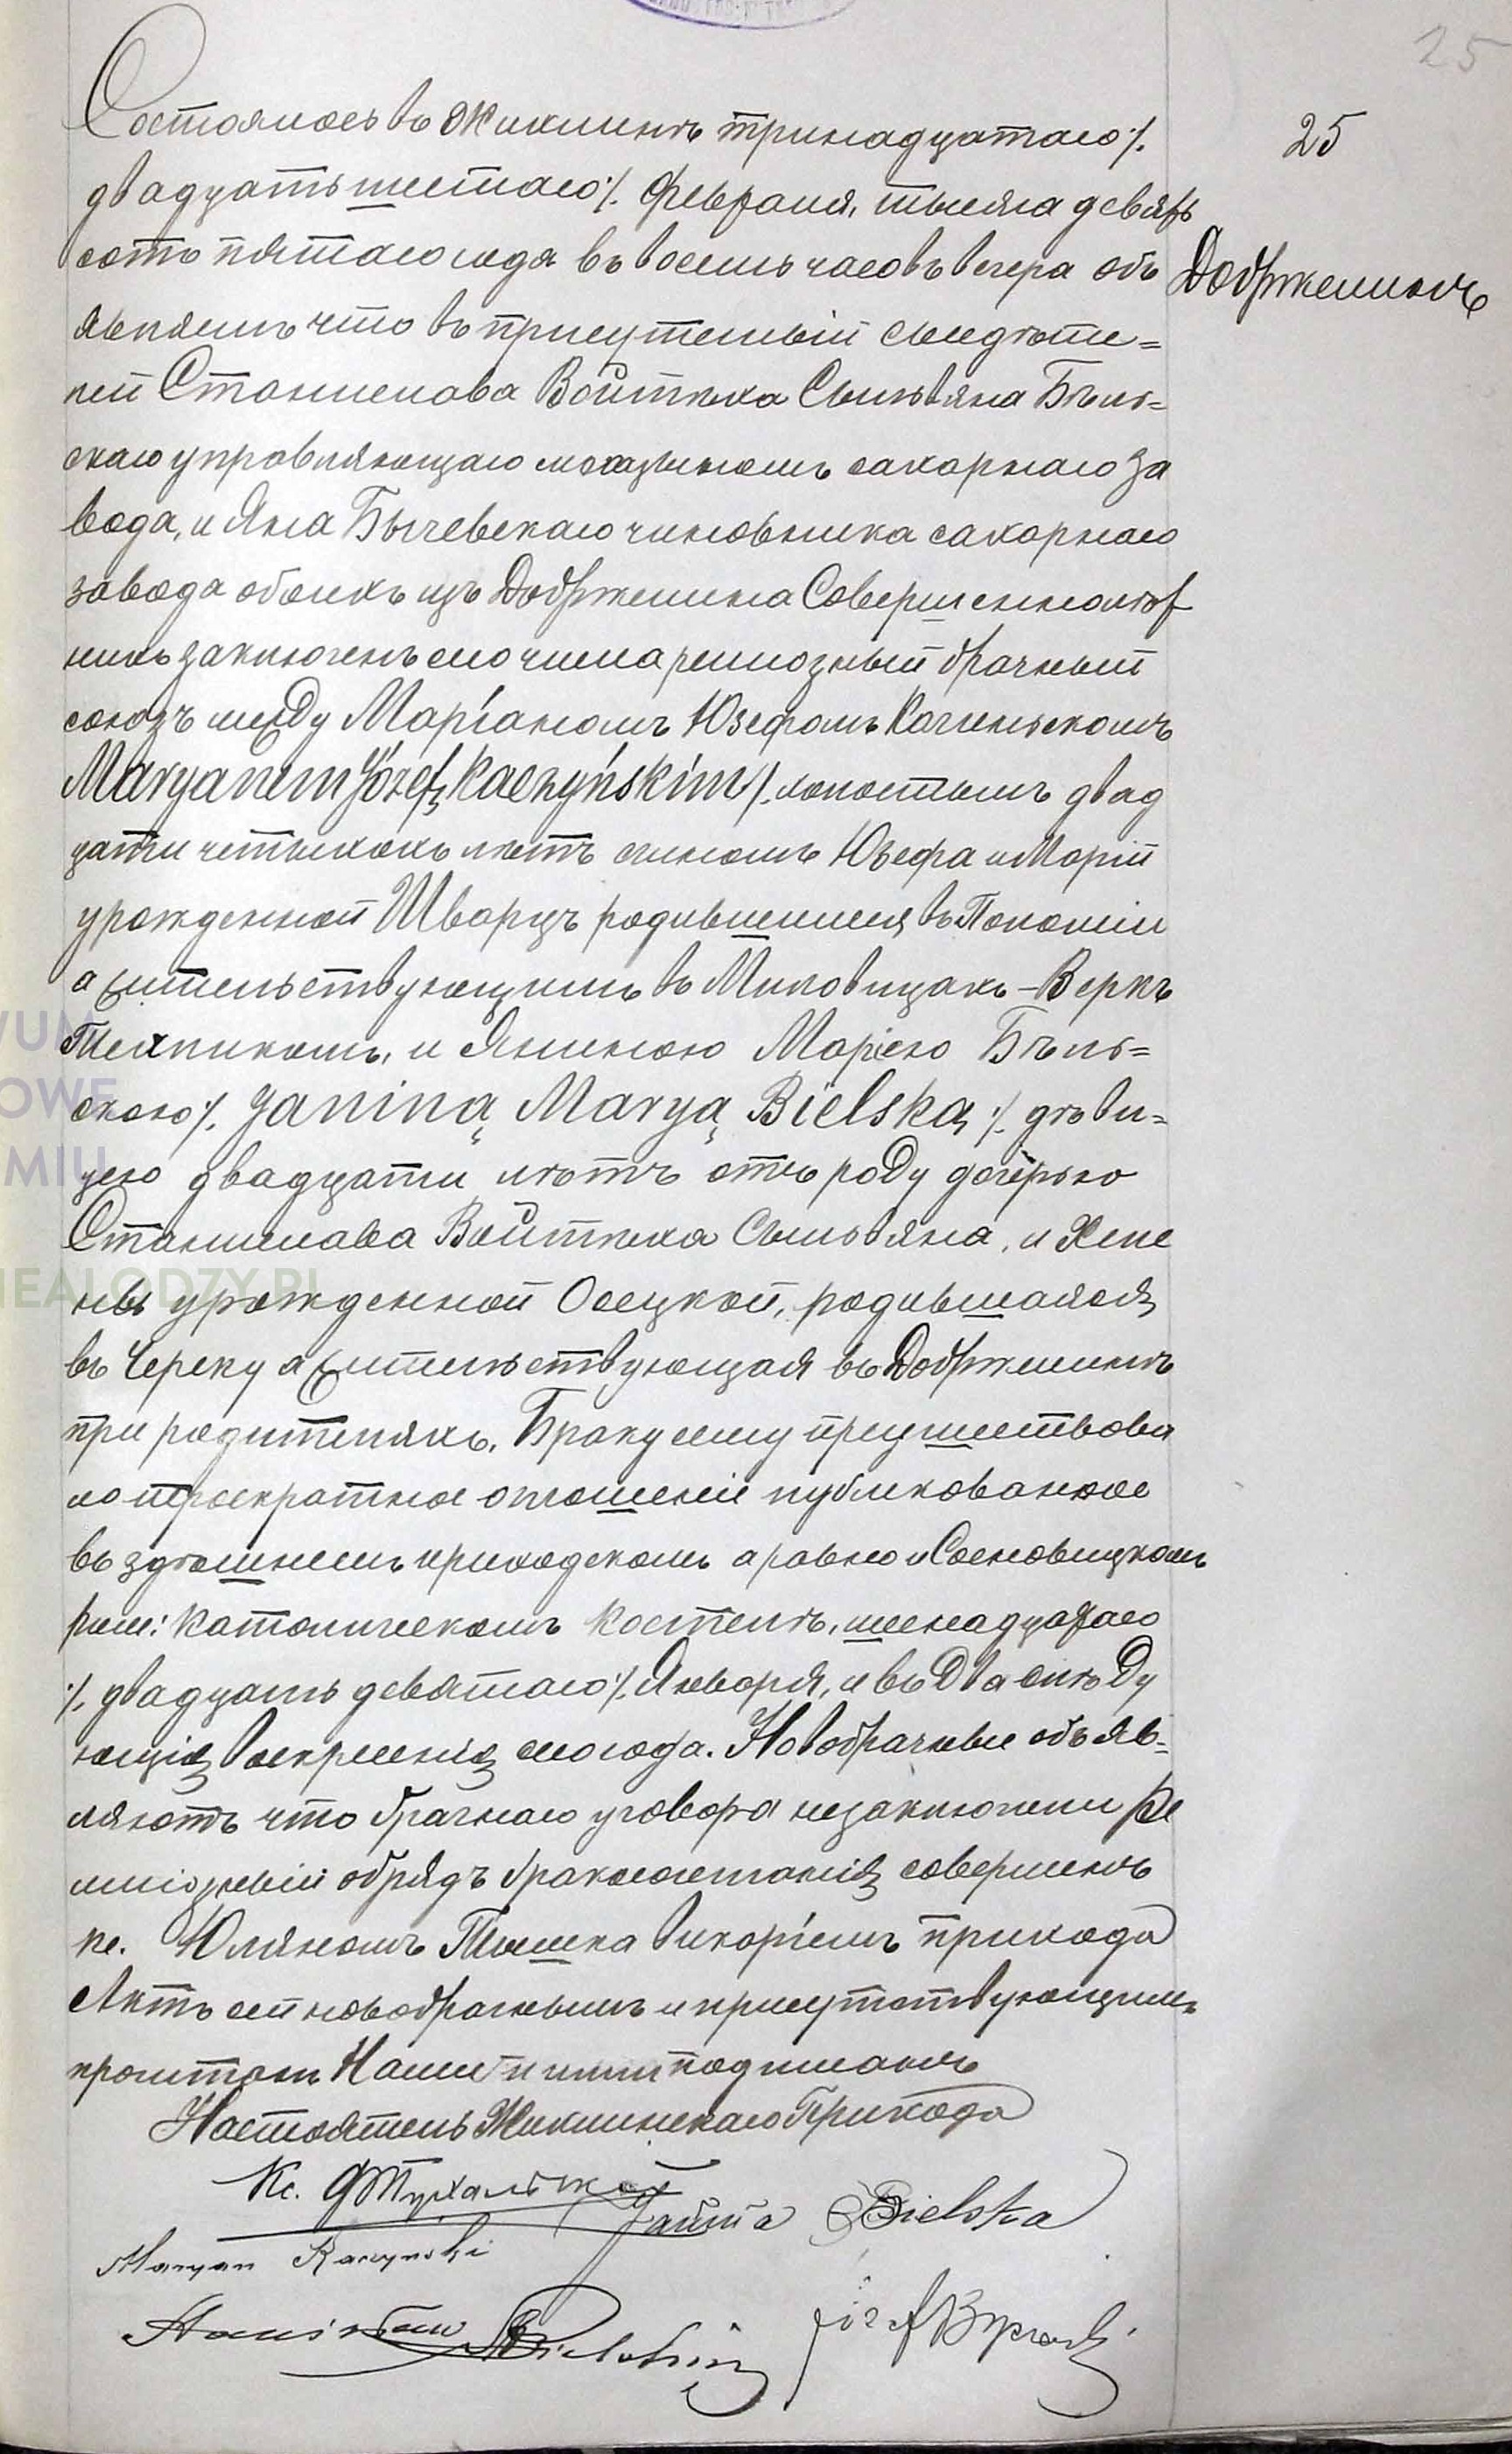 25
25
Добржелинъ
Состоялось въ Жихлинѣ тринадцатаго /.
двадцать шестаго /. Февраля, тысяча девять
сотъ пятаго года въ восемь часовъ вечера объ
являемъ что въ присутствіи свидѣте=
лей Станислава Войтѣха Сильвяна Бѣль=
скаго управляющаго магазиномъ сахарнаго за
вода, и Яна Бычевскаго чиновника сахарнаго
завода обоихъ изъ Добржелина Совершеннолѣт
нихъ заключенъ сего числа религіозный брачный
союзъ между Маріаномъ Юзефомъ Качиньскомъ
Maryanem Józef. Kaczyńskim /. холостымъ двад
цати четырехъ лѣтъ сыномъ Юзефа и Маріи
урожденной Шварцъ родившимся въ
а жительствующимъ въ Миловицахъ-Веркъ
Техникомъ, и Яниною Маріею Бѣль=
скою /. Janiną Maryą Bielską /. дѣви=
цею двадцати лѣтъ отъ роду дочерью
Станислава Войтѣха Сильвяна, и Хеле
ны урожденной Осецкой, родившаяся
въ Череку а жительствующая въ Добржелинѣ
при родителяхъ. Браку сему предшествова
ло троекратное оглошеніе публикованное
въ здѣшнемъ приходскомъ а равно и Сосновицкомъ
рим: католическомъ костелѣ, шеснадцатаго
/. двадцать девятаго /. Января, и въ два слѣду
ющія воскресенія сего года. Новобрачные объяв=
ляютъ что брачнаго уговора незаключили Ре
лигіозный обрядъ бракосочетанія совершенъ
кс. Юляномъ Тышка викаріемъ прихода
Актъ сей новобрачнымъ и присутствующимъ
прочитанъ Нами и ими подписанъ
Настоятель Жихлинскаго Прихода
Кс.
Janina Bielska
Maryan Kaczyński
Stanisław Bielski
Józef